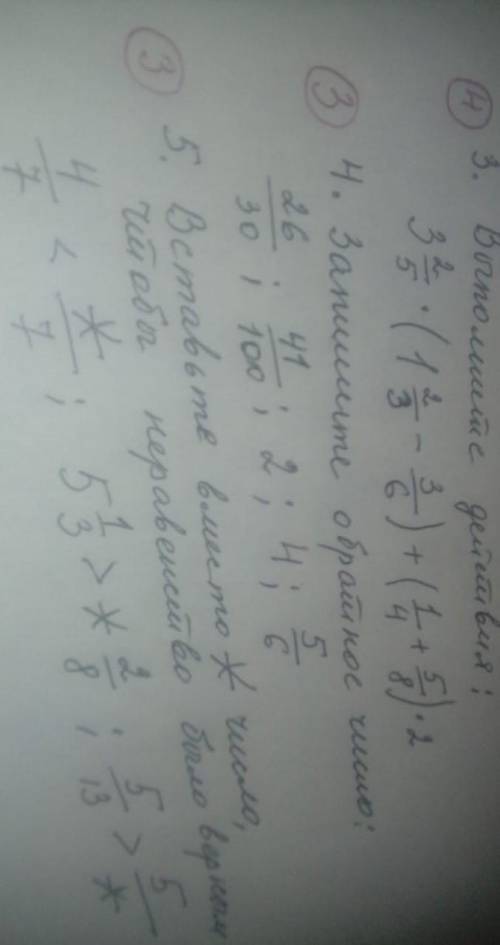 ④ 3. Выполните действия:
3 2/5 · (1 2/3 − 3/6) + (1/4 + 5/8) · 2
③ 4. Запишите обратное число:
26/30 ; 41/100 ; 2 ; 4 ; 5/6
③ 5. Вставьте вместо * число,
чтобы неравенство было верным
4/7 < */7 ; 5 1/3 > * 2/8 ; 5/13 > 5/*